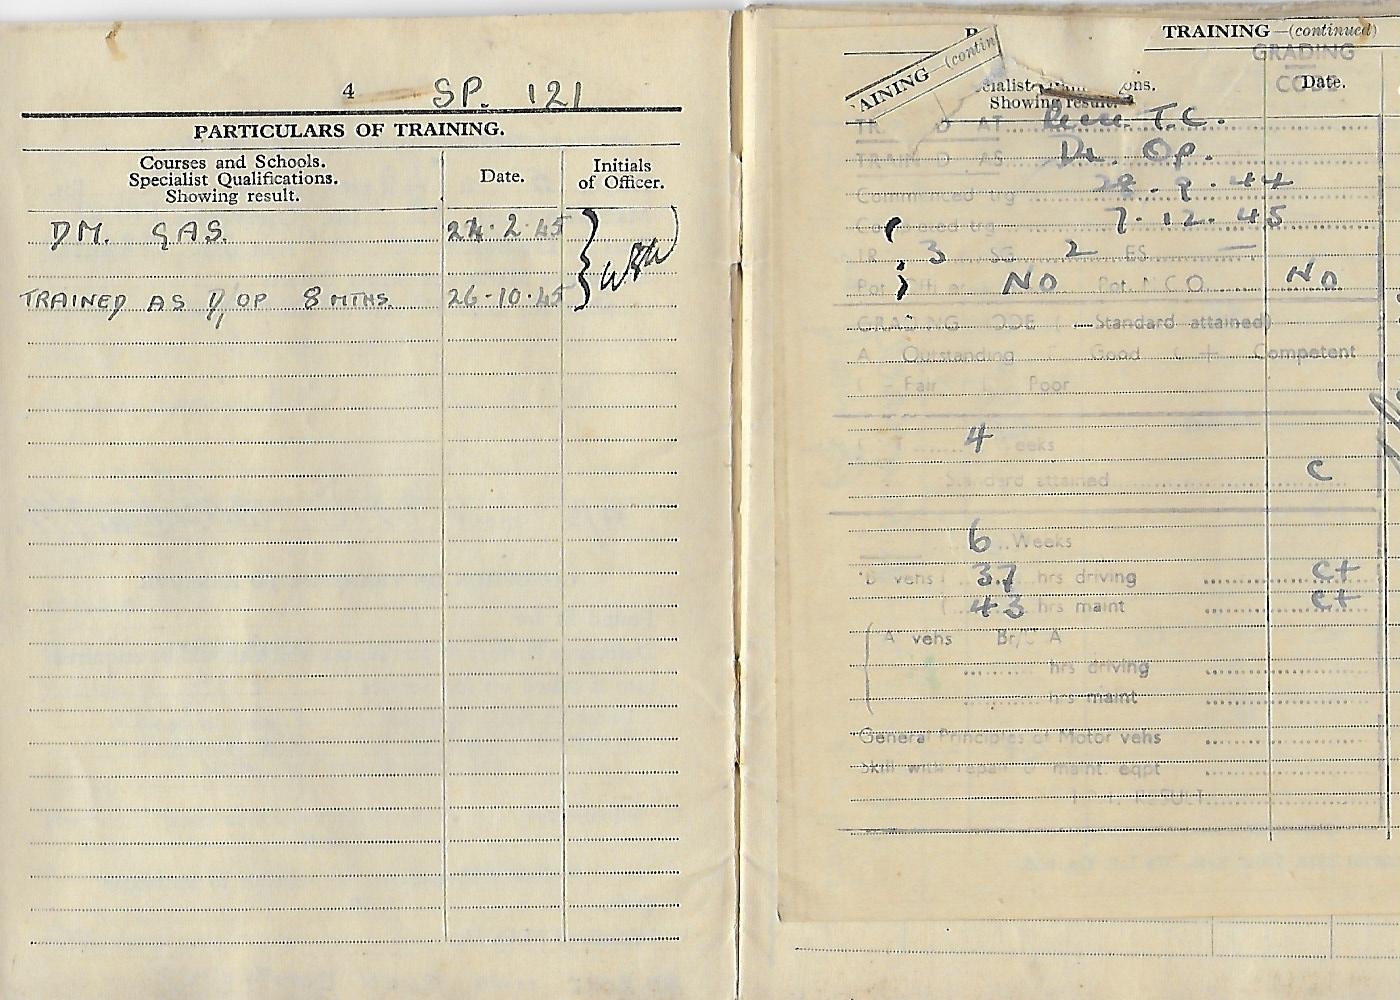 4 SP. 121
PARTICULARS OF TRAINING.
Courses and Schools.
Specialist Qualifications.
Showing result.
Date.
Initials
of Officer.
DM. GAS. 24.2.45
TRAINED AS D/OP 8 MTHS. 26-10-45
WBW
TRAINING—(continued)
AINING—(contin
GRADING
CODE
Date.
Showing result.
AT T.C.
AS Dr. Op.
Commenced trg 28.9.44
trg 7.12.45
3 SG 2 ES —
NO Pot. N.C.O. NO
(Standard attained)
A Outstanding Good C + Competent
Fair Poor
4 eeks
Standard attained C
6 Weeks
B vehs 37 hrs driving C+
43 hrs maint C+
A vehs
hrs driving
hrs maint
General Principles of Motor vehs
Skill with repair & maint. eqpt
RESULT